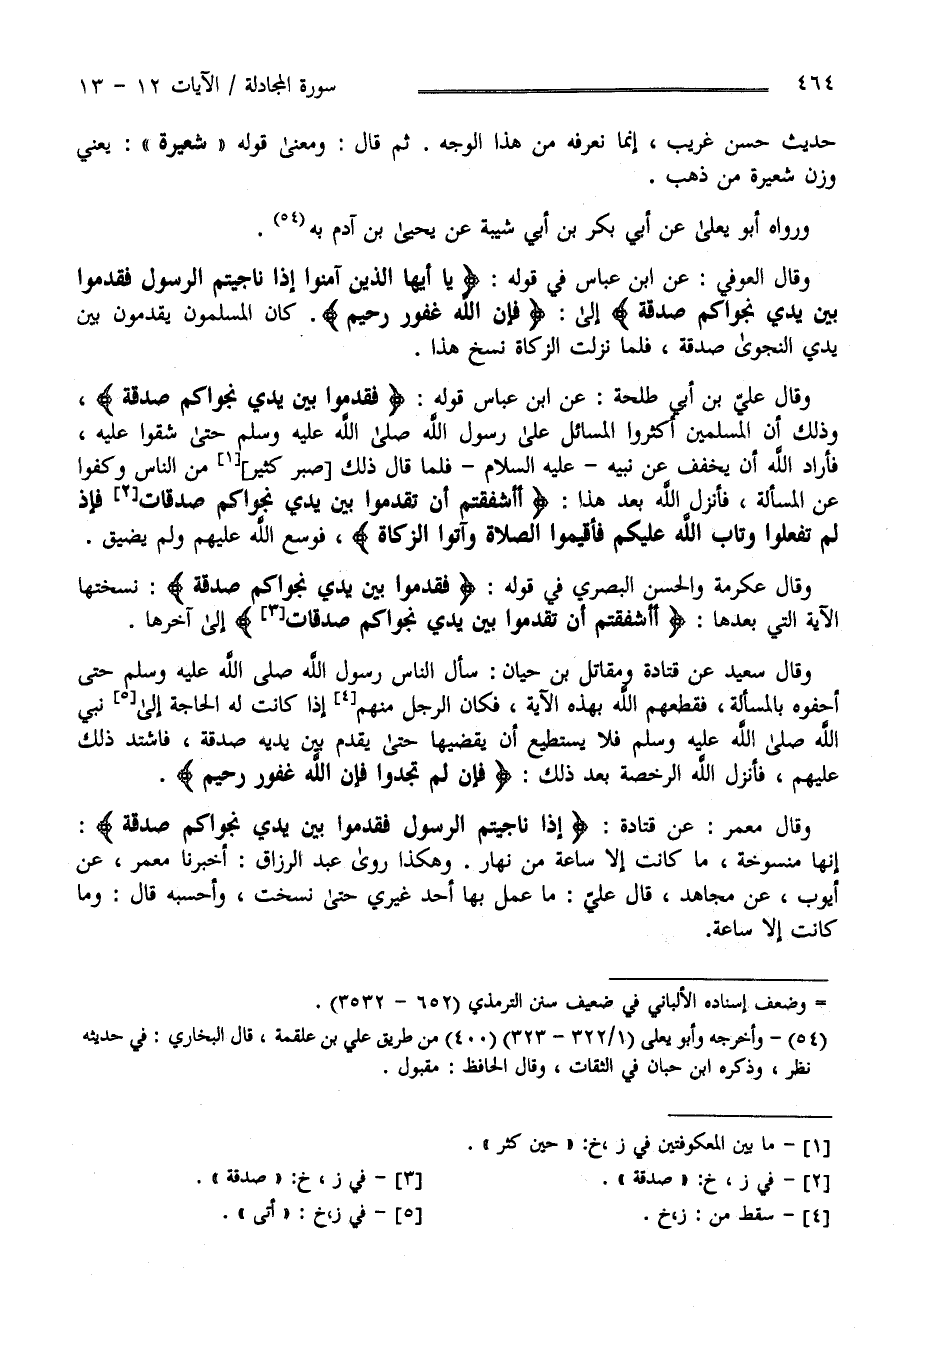 ٤٦٤ سورة المجادلة / الآيات ١٢ - ١٣
حديث حسن غريب ، إنما نعرفه من هذا الوجه . ثم قال : ومعنىٰ قوله « شعيرة » : يعني
وزن شعيرة من ذهب .
ورواه أبو يعلىٰ عن أبي بكر بن أبي شيبة عن يحيىٰ بن آدم به(٥٤) .
وقال العوفي : عن ابن عباس في قوله : ﴿ يا أيها الذين آمنوا إذا ناجيتم الرسول فقدموا
بين يدي نجواكم صدقة ﴾ إلىٰ : ﴿ فإن الله غفور رحيم ﴾. كان المسلمون يقدمون بين
يدي النجوىٰ صدقة ، فلما نزلت الزكاة نسخ هذا .
وقال عليّ بن أبي طلحة : عن ابن عباس قوله : ﴿ فقدموا بين يدي نجواكم صدقة ﴾ ،
وذلك أن المسلمين أكثروا المسائل علىٰ رسول الله صلىٰ الله عليه وسلم حتىٰ شقوا عليه ،
فأراد الله أن يخفف عن نبيه - عليه السلام - فلما قال ذلك [صبر كثير][١] من الناس وكفوا
عن المسألة ، فأنزل الله بعد هذا : ﴿ أأشفقتم أن تقدموا بين يدي نجواكم صدقات[٢] فإذ
لم تفعلوا وتاب الله عليكم فأقيموا الصلاة وآتوا الزكاة ﴾ ، فوسع الله عليهم ولم يضيق .
وقال عكرمة والحسن البصري في قوله : ﴿ فقدموا بين يدي نجواكم صدقة ﴾ : نسختها
الآية التي بعدها : ﴿ أأشفقتم أن تقدموا بين يدي نجواكم صدقات[٣] ﴾ إلىٰ آخرها .
وقال سعيد عن قتادة ومقاتل بن حيان : سأل الناس رسول الله صلى الله عليه وسلم حتى
أحفوه بالمسألة ، فقطعهم الله بهذه الآية ، فكان الرجل منهم[٤] إذا كانت له الحاجة إلىٰ[٥] نبي
الله صلىٰ الله عليه وسلم فلا يستطيع أن يقضيها حتىٰ يقدم بين يديه صدقة ، فاشتد ذلك
عليهم ، فأنزل الله الرخصة بعد ذلك : ﴿ فإن لم تجدوا فإن الله غفور رحيم ﴾ .
وقال معمر : عن قتادة : ﴿ إذا ناجيتم الرسول فقدموا بين يدي نجواكم صدقة ﴾ :
إنها منسوخة ، ما كانت إلا ساعة من نهار . وهكذا روىٰ عبد الرزاق : أخبرنا معمر ، عن
أيوب ، عن مجاهد ، قال عليّ : ما عمل بها أحد غيري حتىٰ نسخت ، وأحسبه قال : وما
كانت إلا ساعة.
= وضعف إسناده الألباني في ضعيف سنن الترمذي (٦٥٢ - ٣٥٣٢) .
(٥٤) - وأخرجه وأبو يعلى (٣٢٢/١ - ٣٢٣) (٤٠٠) من طريق علي بن علقمة ، قال البخاري : في حديثه
نظر ، وذكره ابن حبان في الثقات ، وقال الحافظ : مقبول .
[١] - ما بين المعكوفتين في ز ،خ: « حين كثر » .
[٢] - في ز ، خ: « صدقة » . [٣] - في ز ، خ: « صدقة » .
[٤] - سقط من : ز،خ . [٥] - في ز،خ : « أتى » .